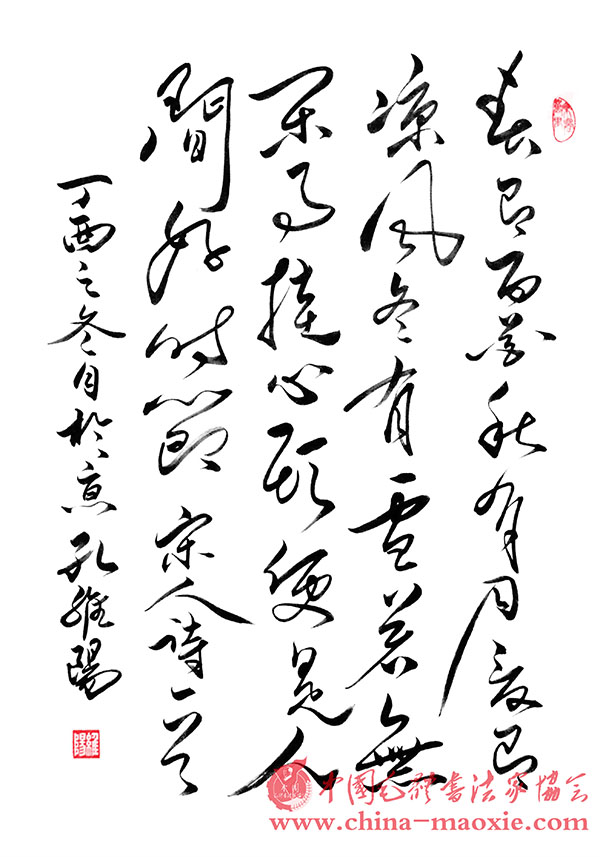 春有百花秋有月夏有
凉风冬有雪若無
闲事挂心头便是人
間好时節 宋人詩一首
丁酉之冬月於京 孔維陽
維陽
中國毛體書法家協会
www.china-maoxie.com